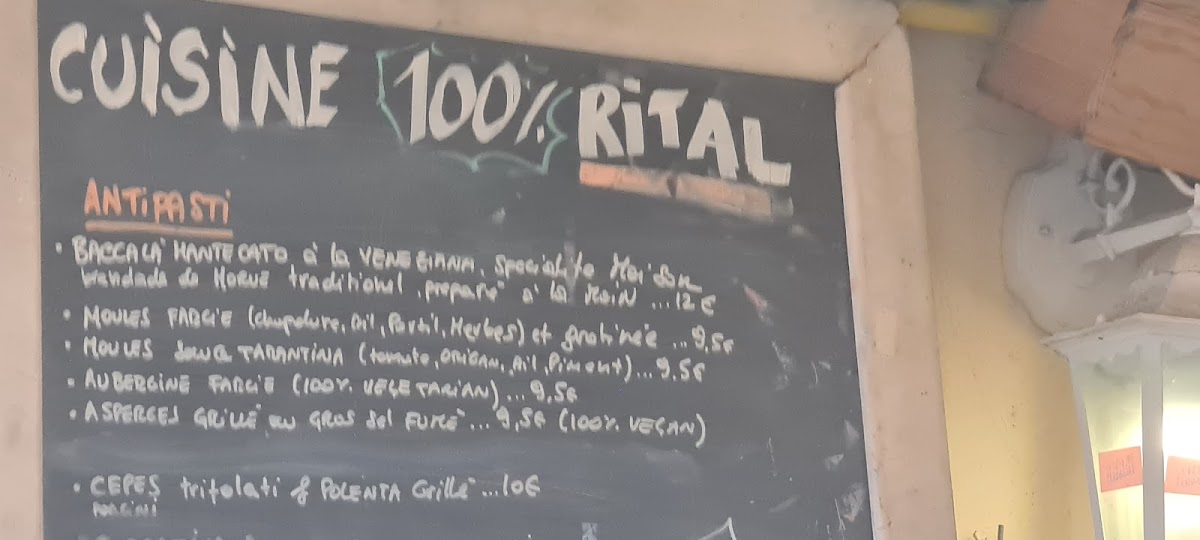 CUISINE 100% RITAL
ANTIPASTI
• BACCALA' MANTECATO à la VENEZIANA, Specialité Maison
brandade de MORUE traditionnel, preparé à la MAIN ... 12 €
• MOULES FARCIE (chapelure, Ail, Persil, Herbes) et gratinée ... 9,5€
• MOULES TARANTINA (tomate, ORIGAN, Ail, Piment) ... 9,5€
• AUBERGINE FARCIE (100% VEGETARIAN) ... 9,5€
• ASPERGES GRILLÉ au GROS Sel FUMÉ ... 9,5€ (100% VEGAN)
• CEPES trifolati & POLENTA Grillé ... 10€
PORCINI